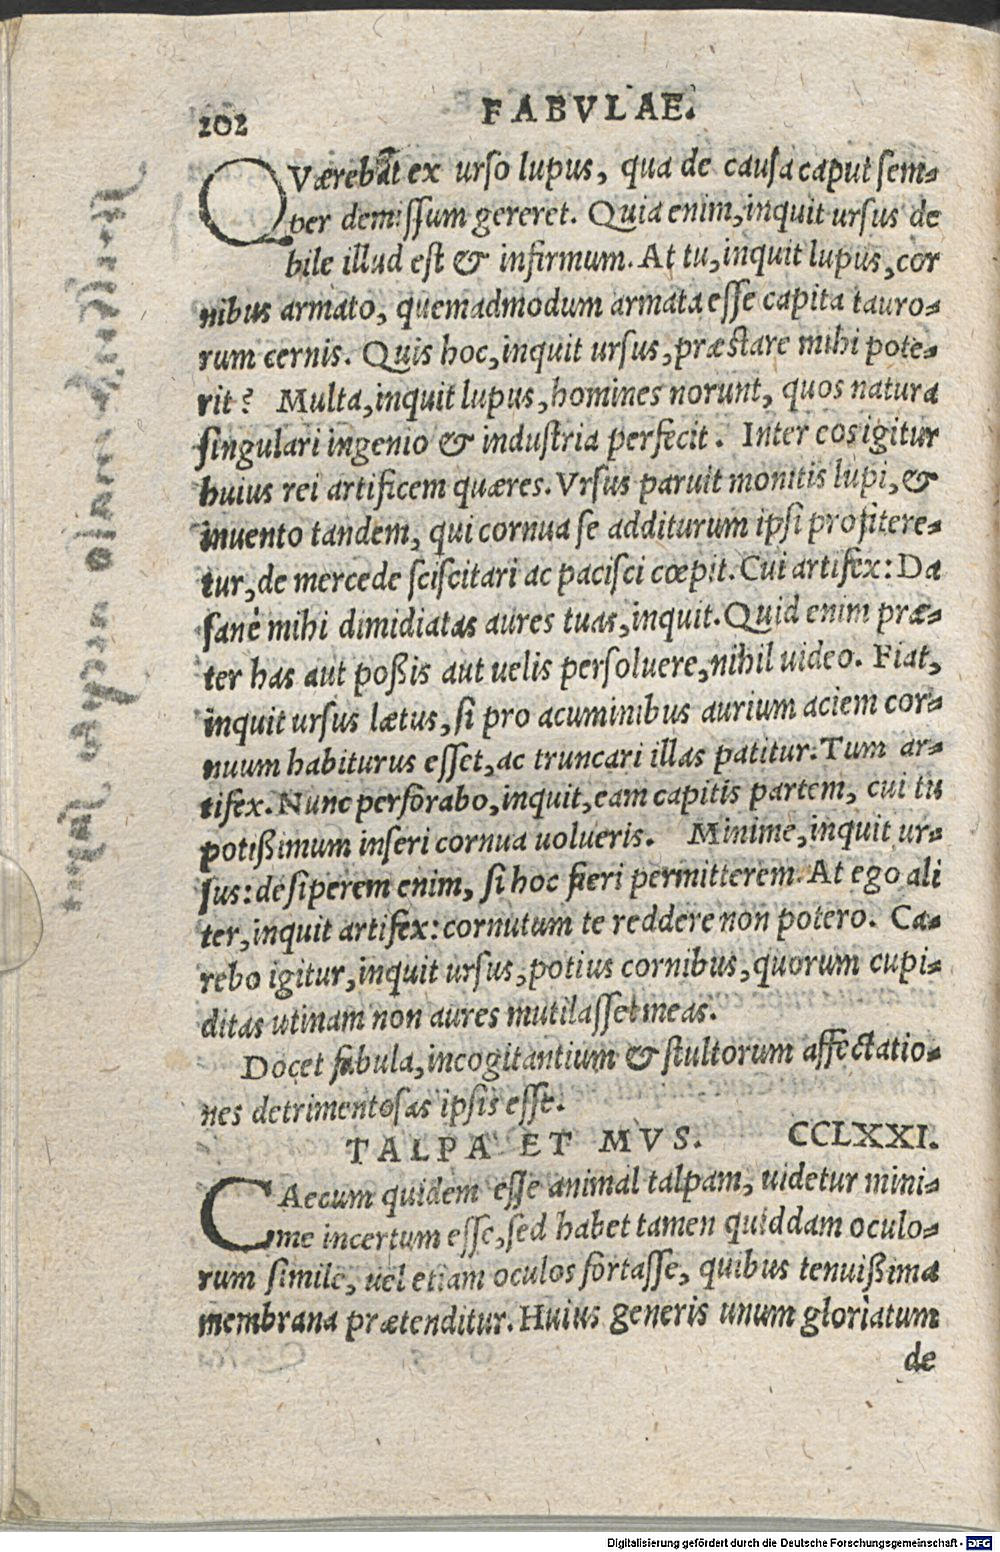 202
FABVLAE.
QVærebat ex urso lupus, qua de causa caput sem-
per demissum gereret. Quia enim, inquit ursus de
bile illud est & infirmum. At tu, inquit lupus, cor
nibus armato, quemadmodum armata esse capita tauro-
rum cernis. Quis hoc, inquit ursus, præstare mihi pote-
rit? Multa, inquit lupus, homines norunt, quos natura
singulari ingenio & industria perfecit. Inter eos igitur
huius rei artificem quæres. Vrsus paruit monitis lupi, &
inuento tandem, qui cornua se additurum ipsi profitere-
tur, de mercede sciscitari ac pacisci cœpit. Cui artifex: Da
sanè mihi dimidiatas aures tuas, inquit. Quid enim præ-
ter has aut poßis aut uelis persoluere, nihil uideo. Fiat,
inquit ursus lætus, si pro acuminibus aurium aciem cor-
nuum habiturus esset, ac truncari illas patitur. Tum ar-
tifex. Nunc perforabo, inquit, eam capitis partem, cui tu
potißimum inseri cornua uolueris. Minime, inquit ur-
sus: desiperem enim, si hoc fieri permitterem. At ego ali
ter, inquit artifex: cornutum te reddere non potero. Ca-
rebo igitur, inquit ursus, potius cornibus, quorum cupi-
ditas utinam non aures mutilasset meas.
Docet fabula, incogitantium & stultorum affectatio-
nes detrimentosas ipsis esse.
TALPA ET MVS. CCLXXI.
CAecum quidem esse animal talpam, uidetur mini-
me incertum esse, sed habet tamen quiddam oculo-
rum simile, uel etiam oculos fortasse, quibus tenuißima
membrana prætenditur. Huius generis unum gloriatum
de
Digitalisierung gefördert durch die Deutsche Forschungsgemeinschaft - DFG